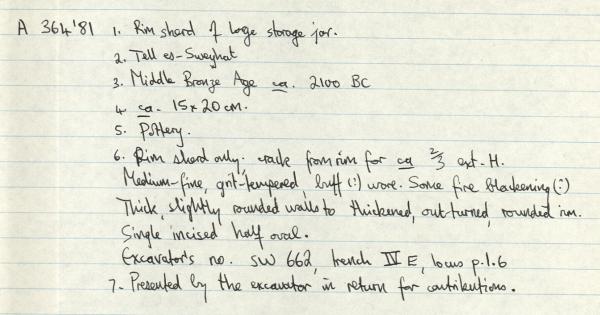 A 364'81 1. Rim sherd of large storage jar.
2. Tell es-Sweyhat
3. Middle Bronze Age ca. 2100 BC
4. ca. 15 x 20 cm.
5. Pottery.
6. Rim sherd only; crack from rim for ca 2/3 ext. H.
Medium-fine, grit-tempered, buff (:) ware. Some fire blackening (:)
Thick, slightly rounded walls to thickened, out-turned, rounded rim.
Single incised half oval.
Excavator's no. SW 662, trench IV E, locus p.1.6
7. Presented by the excavator in return for contributions.